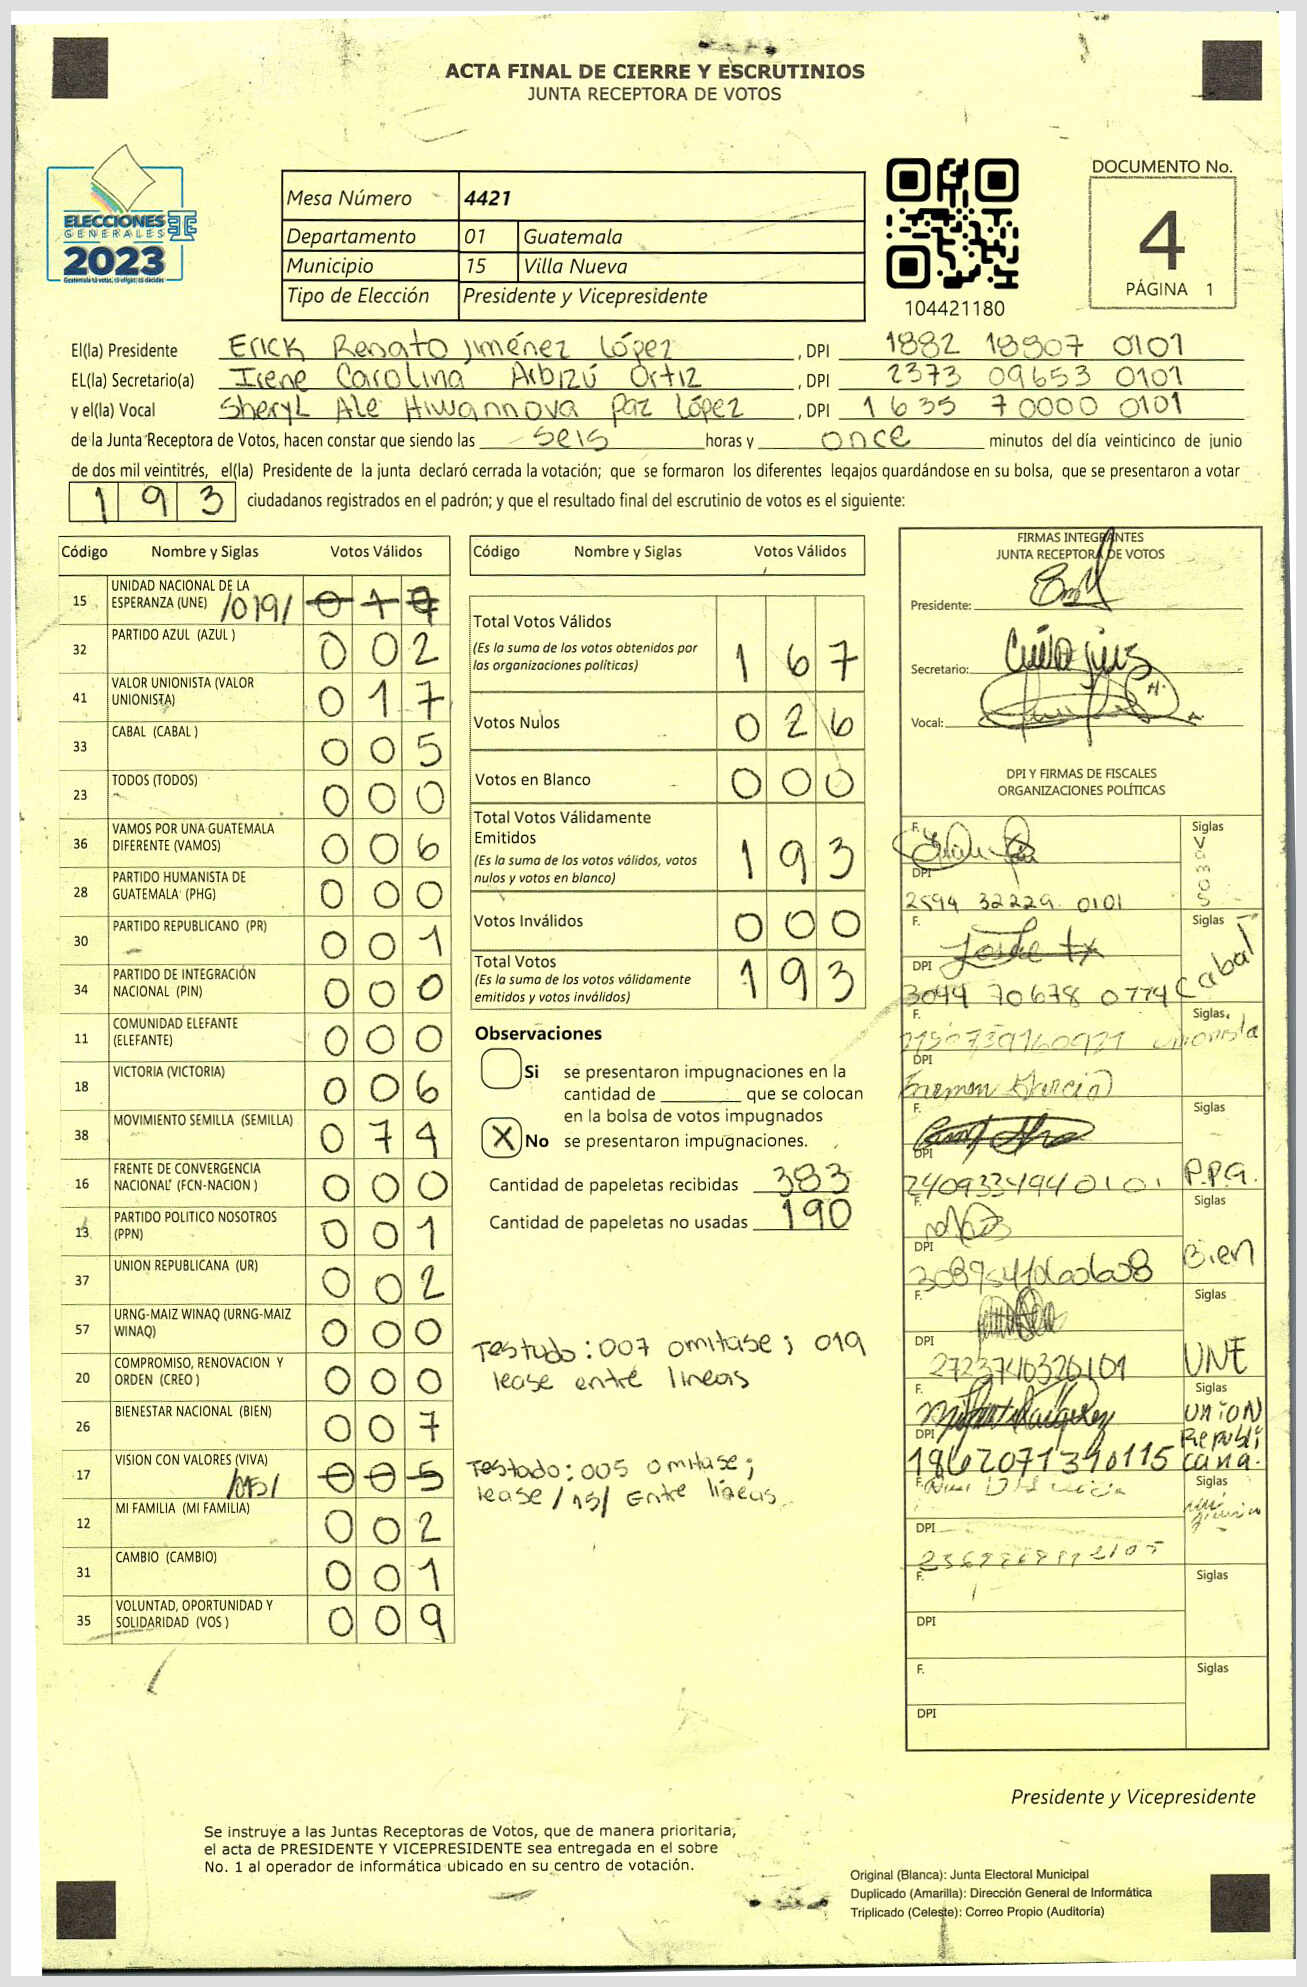 ACTA FINAL DE CIERRE Y ESCRUTINIOS
JUNTA RECEPTORA DE VOTOS
ELECCIONES
GENERALES
2023
Mesa Número 4421
Departamento 01 Guatemala
Municipio 15 Villa Nueva
Tipo de Elección Presidente y Vicepresidente
104421180
DOCUMENTO No.
4
PÁGINA 1
El(la) Presidente Erick Renato Jiménez López , DPI 1882 18907 0101
EL(la) Secretario(a) Irene Carolina Arbizú Ortiz , DPI 2373 09653 0101
y el(la) Vocal Sheryl Ale Hiwannova Paz López , DPI 1635 70000 0101
de la Junta Receptora de Votos, hacen constar que siendo las seis horas y once minutos del día veinticinco de junio
de dos mil veintitrés, el(la) Presidente de la junta declaró cerrada la votación; que se formaron los diferentes legajos guardándose en su bolsa, que se presentaron a votar
193 ciudadanos registrados en el padrón; y que el resultado final del escrutinio de votos es el siguiente:
Código Nombre y Siglas Votos Válidos
15 UNIDAD NACIONAL DE LA
ESPERANZA (UNE) /019/
32 PARTIDO AZUL (AZUL ) 002
41 VALOR UNIONISTA (VALOR
UNIONISTA) 017
33 CABAL (CABAL ) 005
23 TODOS (TODOS) 000
36 VAMOS POR UNA GUATEMALA
DIFERENTE (VAMOS) 006
28 PARTIDO HUMANISTA DE
GUATEMALA (PHG) 000
30 PARTIDO REPUBLICANO (PR) 001
34 PARTIDO DE INTEGRACIÓN
NACIONAL (PIN) 000
11 COMUNIDAD ELEFANTE
(ELEFANTE) 000
18 VICTORIA (VICTORIA) 006
38 MOVIMIENTO SEMILLA (SEMILLA) 074
16 FRENTE DE CONVERGENCIA
NACIONAL (FCN-NACION ) 000
13 PARTIDO POLITICO NOSOTROS
(PPN) 001
37 UNION REPUBLICANA (UR) 002
57 URNG-MAIZ WINAQ (URNG-MAIZ
WINAQ) 000
20 COMPROMISO, RENOVACION Y
ORDEN (CREO ) 000
26 BIENESTAR NACIONAL (BIEN) 007
17 VISION CON VALORES (VIVA) 005
12 MI FAMILIA (MI FAMILIA) 002
31 CAMBIO (CAMBIO) 001
35 VOLUNTAD, OPORTUNIDAD Y
SOLIDARIDAD (VOS ) 009
Código Nombre y Siglas Votos Válidos
Total Votos Válidos
(Es la suma de los votos obtenidos por
las organizaciones políticas) 167
Votos Nulos 026
Votos en Blanco 000
Total Votos Válidamente
Emitidos
(Es la suma de los votos válidos, votos
nulos y votos en blanco) 193
Votos Inválidos 000
Total Votos
(Es la suma de los votos válidamente
emitidos y votos inválidos) 193
Observaciones
Si se presentaron impugnaciones en la
cantidad de ________ que se colocan
en la bolsa de votos impugnados
X No se presentaron impugnaciones.
Cantidad de papeletas recibidas 383
Cantidad de papeletas no usadas 190
Testado: 007 omitase; 019
lease entre lineas
Testado: 005 omitase;
lease /15/ Entre lineas
FIRMAS INTEGRANTES
JUNTA RECEPTORA DE VOTOS
Presidente:
Secretario:
Vocal:
DPI Y FIRMAS DE FISCALES
ORGANIZACIONES POLÍTICAS
F. Siglas
DPI
2594 32229 0101
F. Siglas
DPI Cabal
3044 70678 0774
F. Siglas
DPI
F. Siglas
DPI
2409334940101 P.P.G.
F. Siglas
DPI Bien
F. Siglas
DPI UNE
F. Siglas
DPI UNION Republicana.
1862071390115
F. Siglas
DPI
F. Siglas
DPI
F. Siglas
DPI
Presidente y Vicepresidente
Se instruye a las Juntas Receptoras de Votos, que de manera prioritaria,
el acta de PRESIDENTE Y VICEPRESIDENTE sea entregada en el sobre
No. 1 al operador de informática ubicado en su centro de votación.
Original (Blanca): Junta Electoral Municipal
Duplicado (Amarilla): Dirección General de Informática
Triplicado (Celeste): Correo Propio (Auditoría)